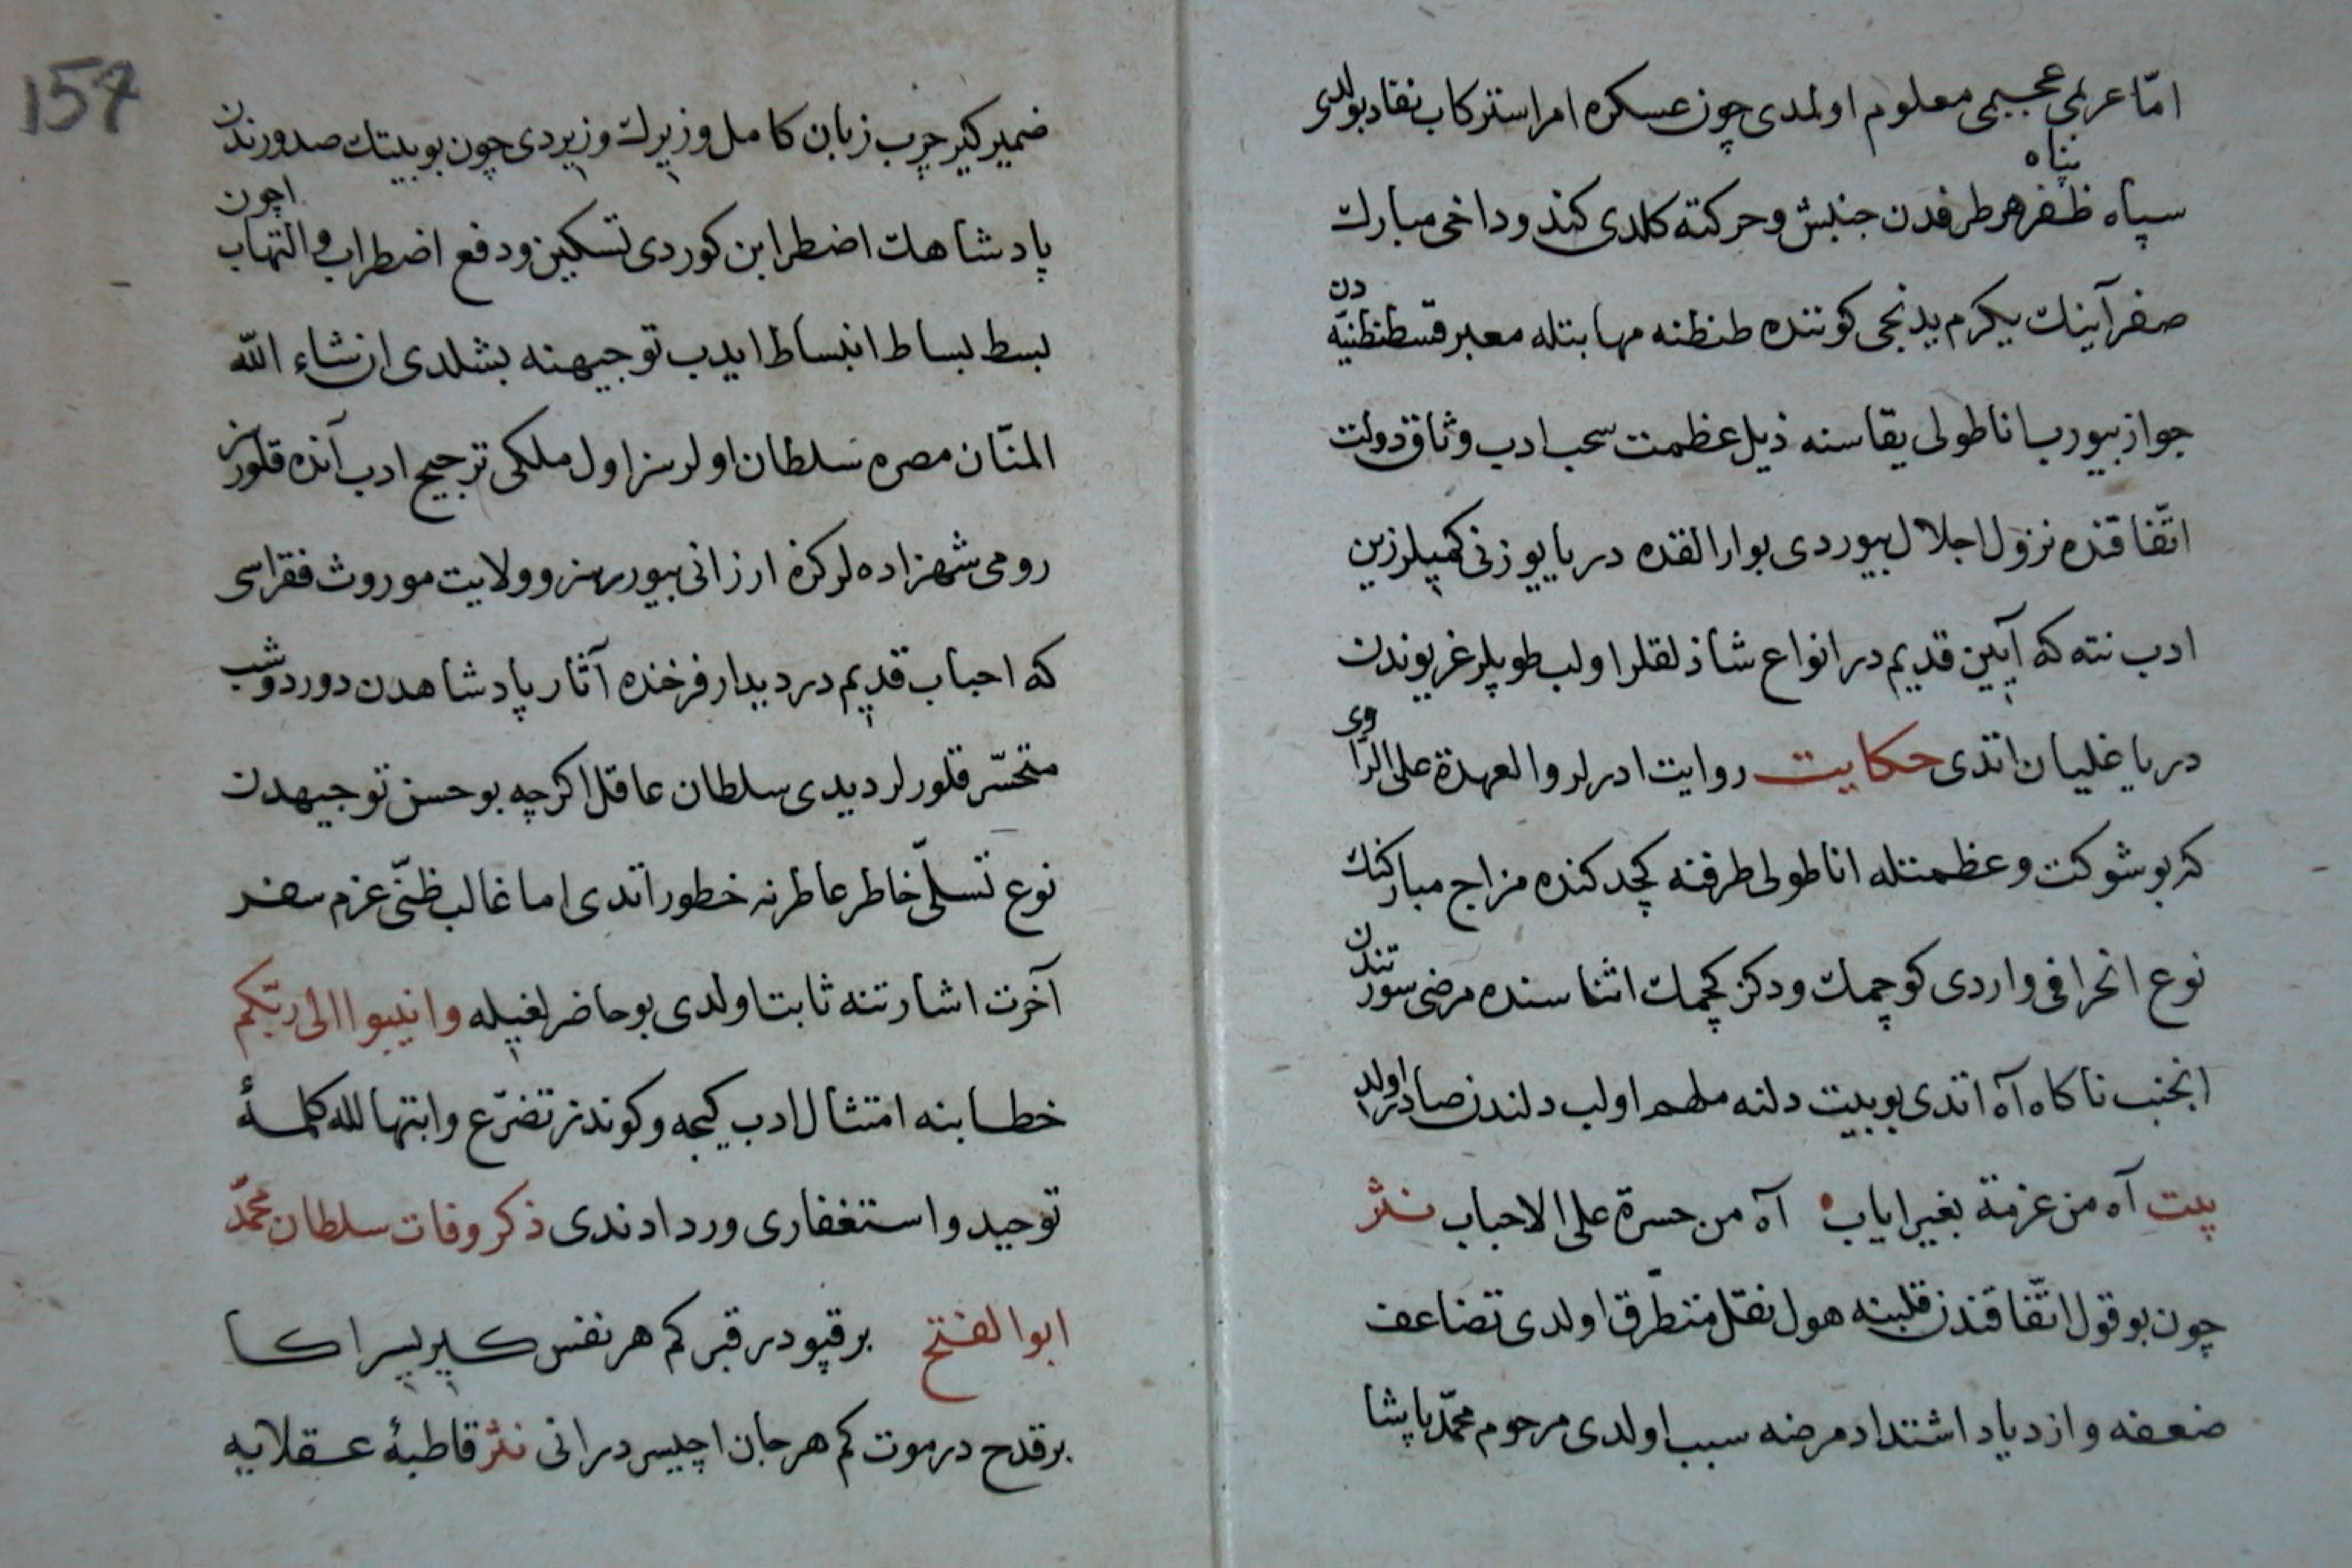 امّا عربمی عجبمی معلوم اولمدی چون عسکره امر استنرکاب نفاد بولدی
سپاه ظفر پناه هر طرفدن جنبش و حرکته کلدی کندو داخی مبارک
صفر آینک یکرم یدنجی کوننده طنطنه مهابتله معبر قسطنطنیّه دن
جواز بیورب اناطولی یقاسنه ذیل عظمت سحب ادب وثاق دولت
اتّفاقنده نزول اجلال بیوردی بو ارالقده دریا یوزنی کمیلرزین
ادب نته که آیین قدیم در انواع شاذلقلر اولب طوپلر غریوندن
دریا غلیان اتدی حکایت روایت ادرلر والعهدة علی الراوی
که بو شوکت و عظمتله اناطولی طرفنه کچدکنده مزاج مبارکنک
نوع انحرافی واردی کوچمک ودکز کچمک اثناسنده مرضی سورتندن
انجنب ناکاه آه اتدی بو بیت دلنه ملهم اولب دلندن صادر اولدی
بیت آه من عزمة بغیر ایاب آه من حسرة علی الاحباب نثر
چون بو قول اتّفاقندن قلبنه هول نقل متطرّق اولدی تضاعف
ضعفه و ازدیاد اشتداد مرضنه سبب اولدی مرحوم محمّد پاشا
ضمیرکیر چرب زبان کامل وزیرک وزیردی چون بو بیتک صدورندن
پادشاهک اضطرابن کوردی تسکین ودفع اضطراب والتهاب اچون
بسط بساط انبساط ایدب توجیهنه بشلدی ان شاء الله
المنّان مصره سلطان اولرسز اول ملکی ترجیح ادب آنده قلورسز
رومی شهزاده لرکزه ارزانی بیوررسز و ولایت موروث فقراسی
که احباب قدیم در دیدار فرخنده آثار پادشاهدن دور دوشب
متحسّر قلورلر دیدی سلطان عاقل اکرچه بو حسن توجیهدن
نوع تسلّی خاطر عاطرنه خطور اتدی اما غالب ظنّی عزم سفر
آخرت اشارتنه ثابت اولدی بو حاضرلغیله وانیبوا الی ربّکم
خطابنه امتثال ادب کیجه و کوندز تضرّع وابتهالله کلمهٔ
توحید و استغفاری ورد ادندی ذکر وفات سلطان محمّد
ابو الفتح بر قپودر قبر کم هر نفس کیریسر اکا
بر قدح در موت کم هر جان اچیسر در انی نثر قاطبهٔ عقلایه
157